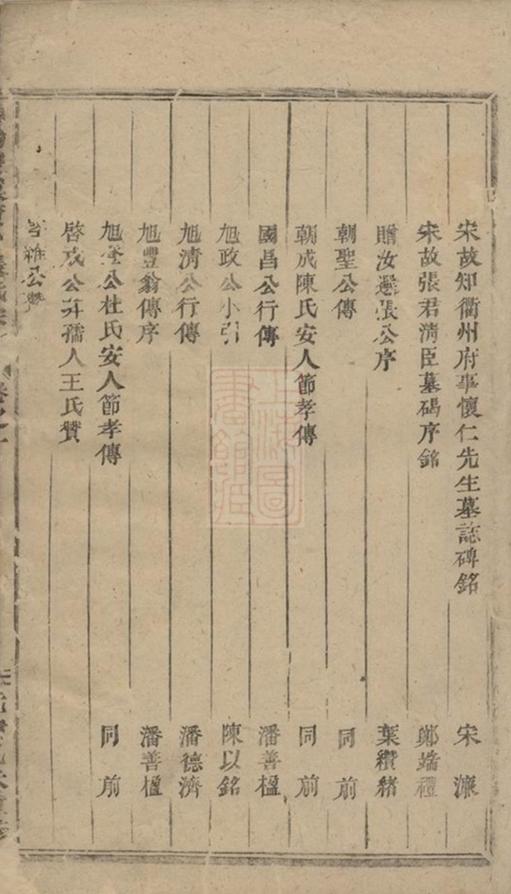 宋故知衢州府事懷仁先生墓誌碑銘 宋濂
宋故張君淸臣墓碣序銘 鄭端禮
贈汝張公序 葉纘緒
朝聖公傳 同前
朝成陳氏安人節孝傳 同前
國昌公行傳 潘善楹
旭政公小引 陳以銘
旭淸公行傳 潘德濟
旭豐翁傳序 潘善楹
旭公杜氏安人節孝傳 同前
啓成公幷孺人王氏贊
公
上海圖書館藏